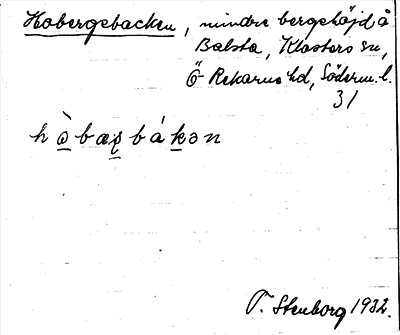 Habergsbacken, mindre bergshöjd å
Balsta, Klosters sn,
Ö-Rekarne hd, Söderm. l.
31
h ò̲ b a ȩ̲ b á k̲ ə n
T. Stenborg 1932.